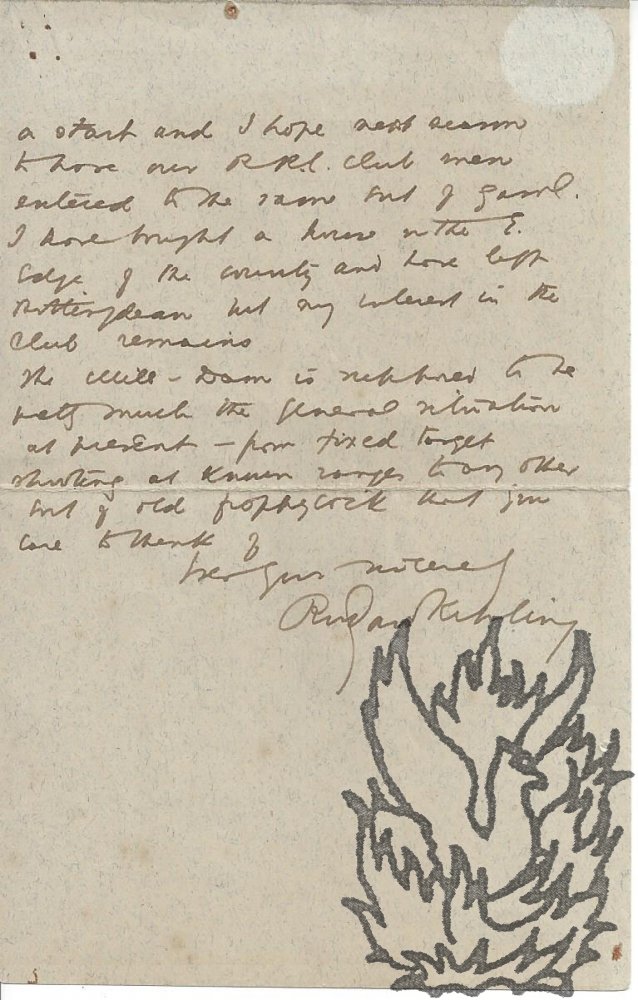 a start and I hope next season
to have our R.R.C. Club men
entered to the same sort of game.
I have bought a house on the E.
edge of the county and have left
Rottingdean but my interest in the
club remains
The Mill-Dam is supposed to be
pretty much the general situation
at present - from fixed target
shooting at known ranges to any other
sort of old poppycock that you
care to think of
Very sincerely
Rudyard Kipling